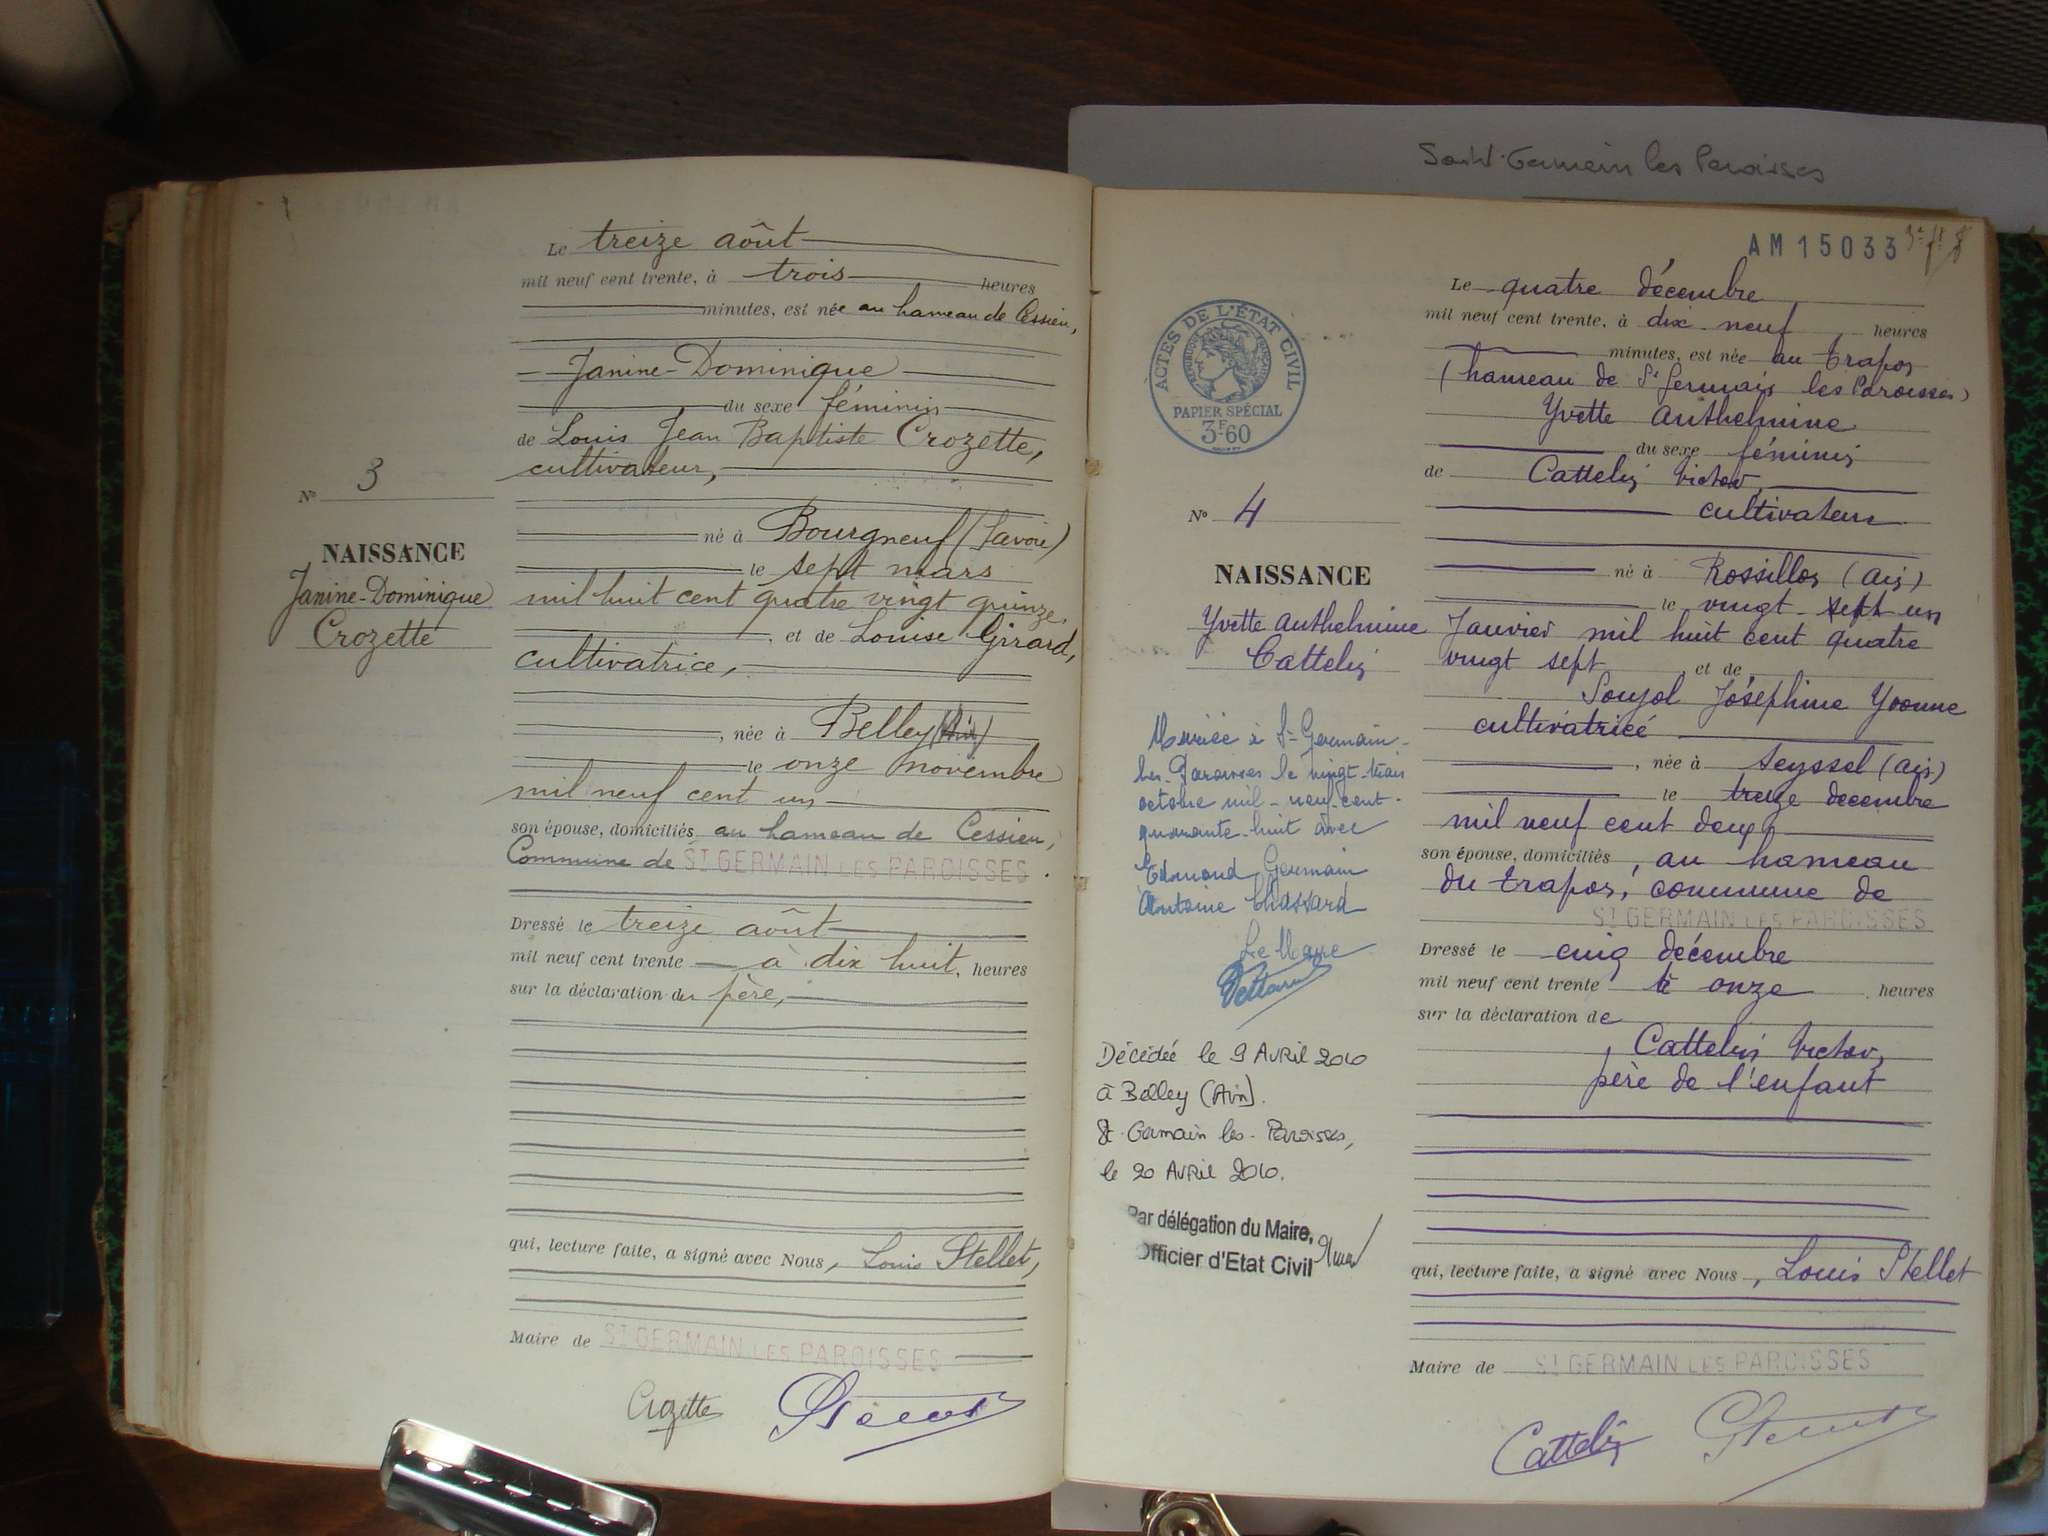 Saint-Germain les Paroisses
Le treize août
mil neuf cent trente, à trois heures
minutes, est née au hameau de Cessieu,
Janine-Dominique
du sexe féminin
de Louis Jean Baptiste Crozette,
cultivateur,
N° 3
né à Bourgneuf (Savoie)
NAISSANCE
le sept mars
Janine-Dominique
mil huit cent quatre vingt quinze,
Crozette
, et de Louise Girard,
cultivatrice,
, née à Belley (Ain)
le onze novembre
mil neuf cent un
son épouse, domiciliés au hameau de Cessieu,
Commune de ST GERMAIN LES PAROISSES .
Dressé le treize août
mil neuf cent trente à dix huit, heures
sur la déclaration du père,
qui, lecture faite, a signé avec Nous, Louis Stellet,
Maire de ST GERMAIN LES PAROISSES
Crozette
AM 15033
ACTES DE L'ÉTAT CIVIL
RÉPUBLIQUE FRANÇAISE
PAPIER SPÉCIAL
3F60
Le quatre décembre
mil neuf cent trente, à dix neuf heures
minutes, est née au trapon
(hameau de St Germain les Paroisses)
Yvette Anthelmine
du sexe féminin
de Cattelin Victor,
cultivateur
N° 4
né à Rossillon (Ain)
NAISSANCE
le vingt sept un
Yvette Anthelmine
Janvier mil huit cent quatre
Cattelin
vingt sept et de
Soujol Joséphine Yvonne
cultivatrice
, née à Seyssel (Ain)
le treize decembre
mil neuf cent deux
son épouse, domiciliés, au hameau
du trapon, commune de
ST GERMAIN LES PAROISSES
Dressé le cinq décembre
mil neuf cent trente à onze heures
sur la déclaration de
Cattelin Victor,
père de l'enfant
qui, lecture faite, a signé avec Nous, Louis Stellet
Maire de ST GERMAIN LES PAROISSES
Cattelin
Mariée à St-Germain-
les-Paroisses le vingt-trois
octobre mil-neuf-cent-
quarante-huit avec
Edmond Germain
Antoine Chassard
Le Maire
Décédée le 9 Avril 2010
à Belley (Ain).
St-Germain-les-Paroisses,
le 20 Avril 2010.
Par délégation du Maire,
Officier d'Etat Civil